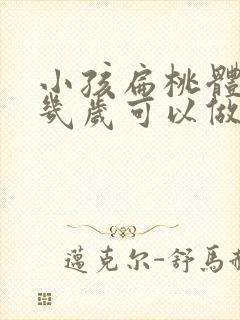 小孩扁桃體
幾歲可以做
邁克尔-舒馬赫